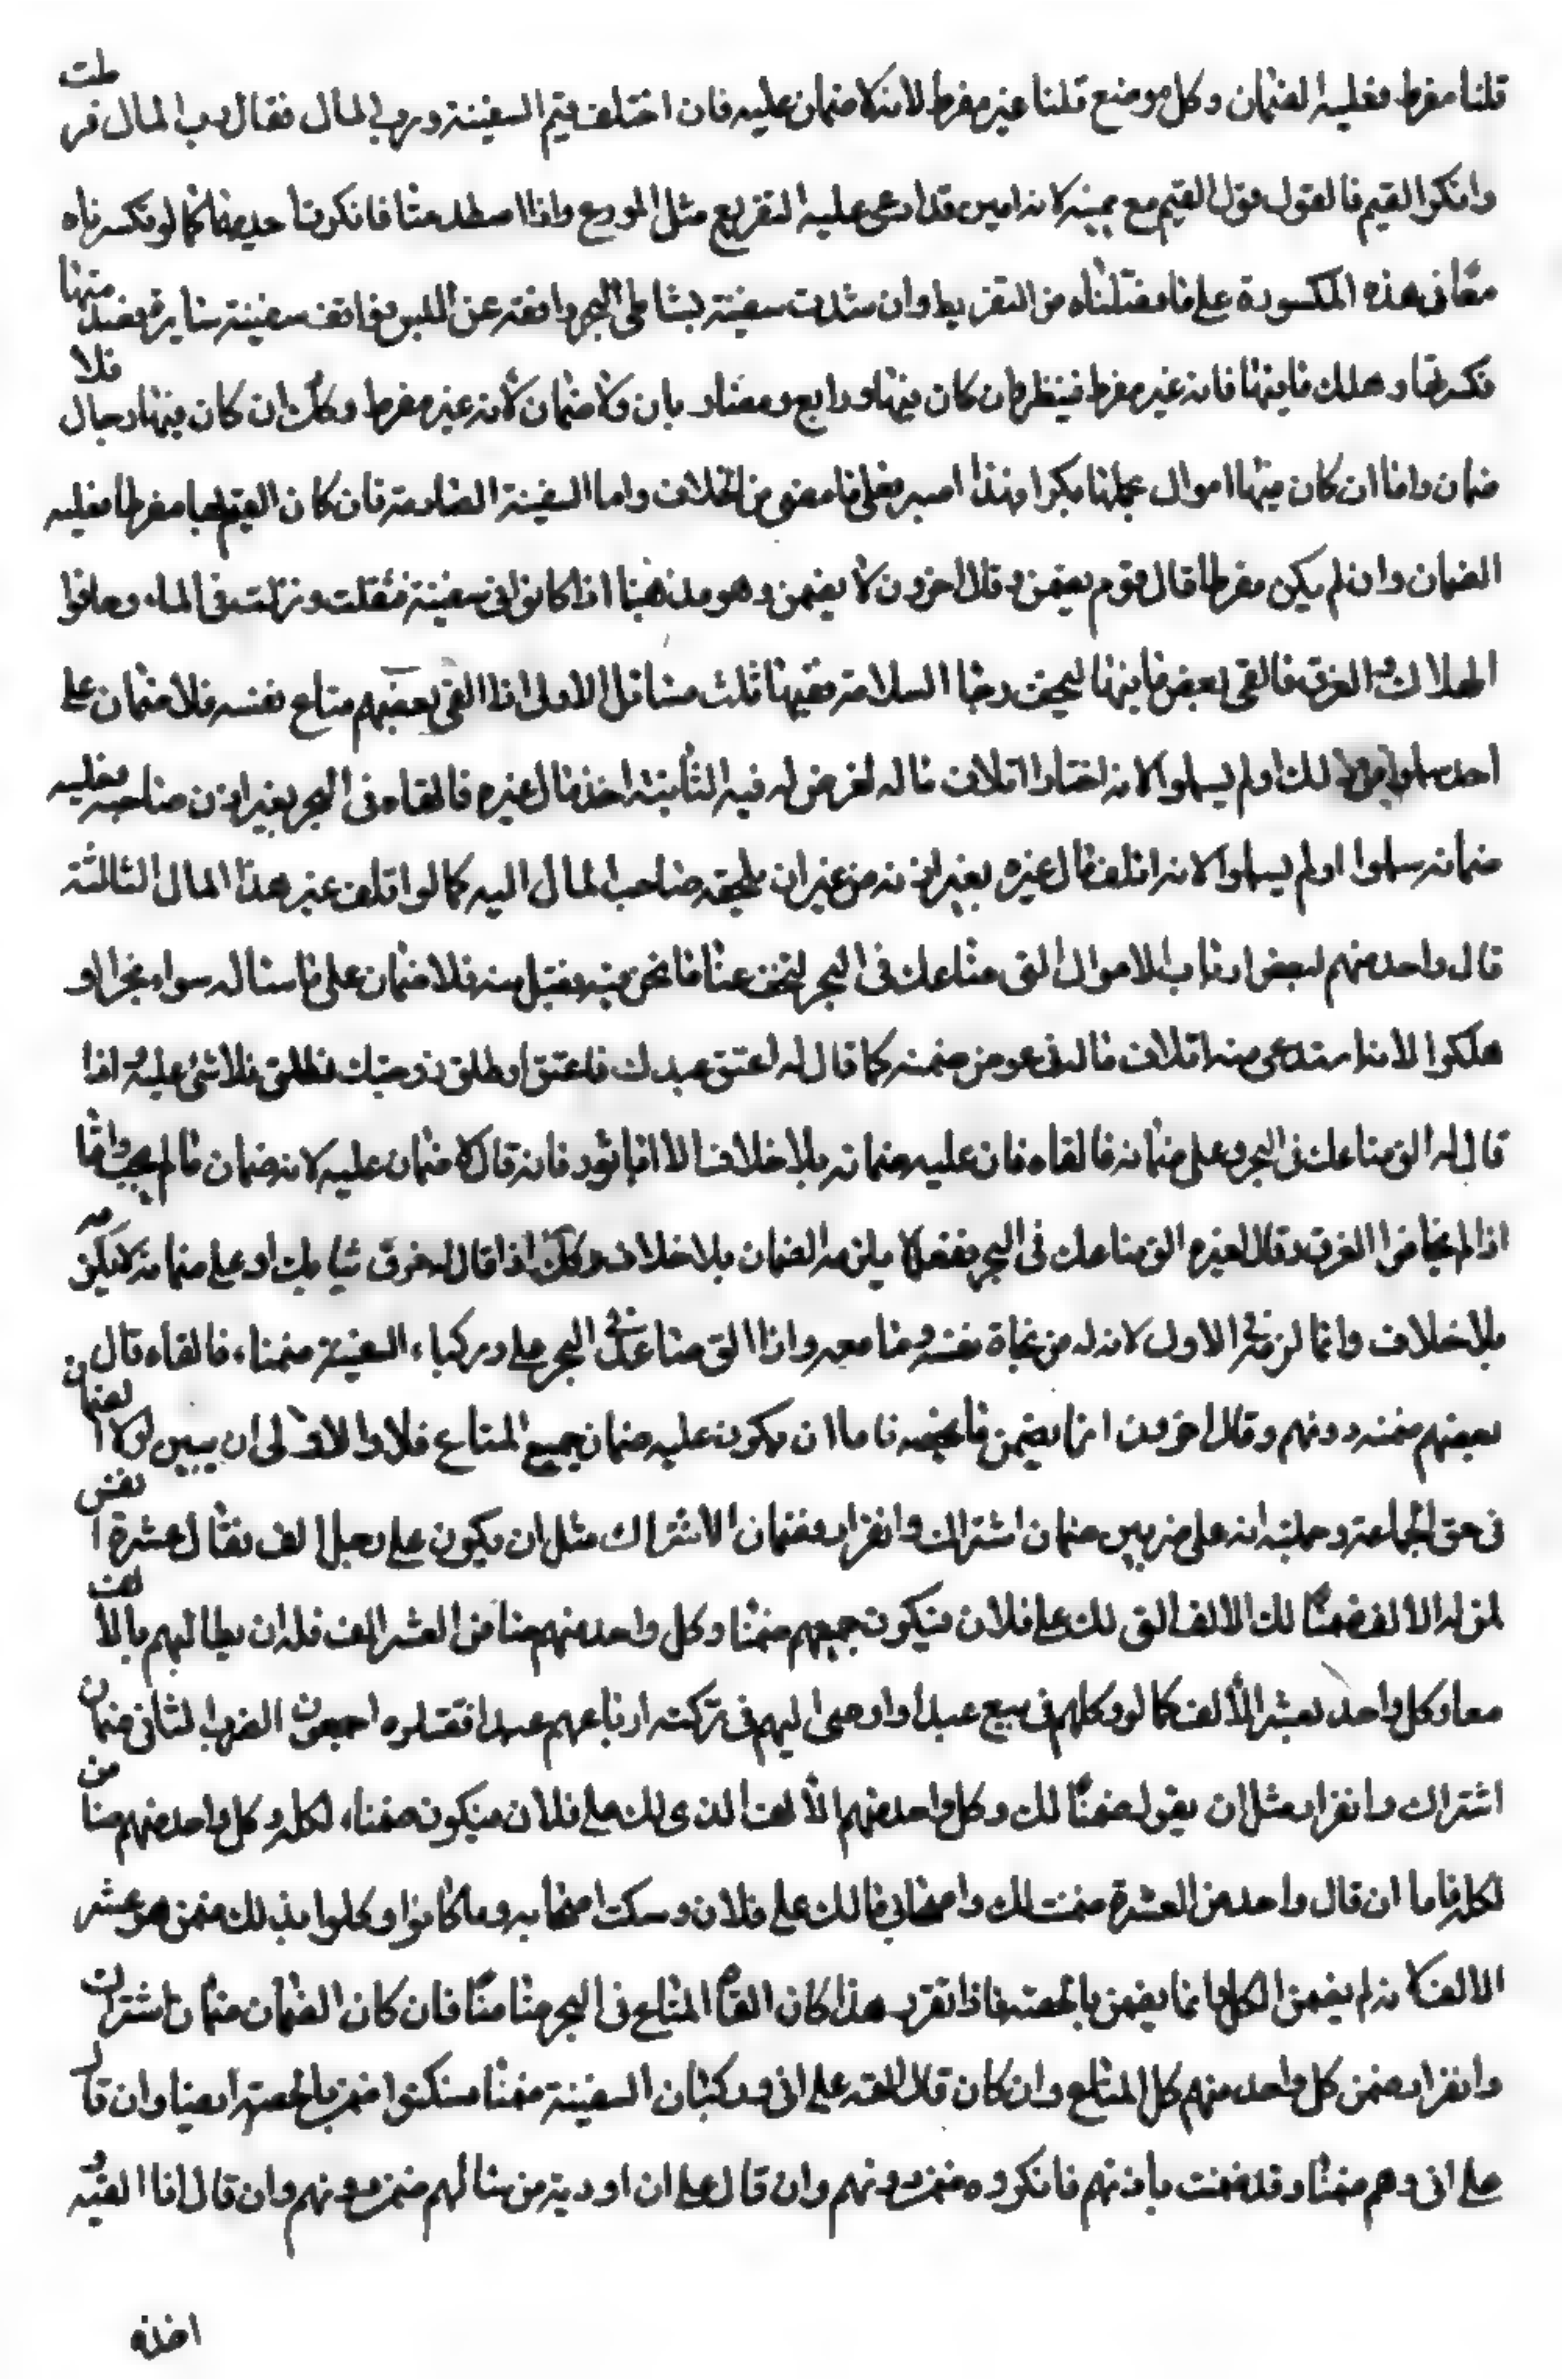 قلنا مفرط فعليه الضمان وكل موضع قلنا غير مفرط لانه لا ضمان عليه فان اختلف قيم السفينة ورب المال فقال رب المال فرطت
وانكر القيم فالقول قول القيم مع يمينه لانه امين وقد ادعى عليه التفريط مثل المودع واذا اصطدمتا فانكرتا احديهما كما لو تكسرتاه
معا في هذه المكسورة على ما فصلناه من التفريط وان شدت سفينة بشاطئ البحر واقفه عن السير فوافت سفينة سايرة فصدمتها
فكسرتها وهلك ما فيها فانه غير مفرط فينظر ان كان فيها ودايع ومضاربات ولا ضمان لانه غير مفرط وكك ان كان فيها رجال فلا
ضمان واما ان كان فيها اموال حملها بكرا فهذا اجير فعلى ما مضى من الخلاف واما السفينة الصادمة فان كان القيم بها مفرطا فعليه
الضمان وان لم يكن مفرطا قال قوم يضمن وقال اخرون لا يضمن وهو مذهبنا اذا كانوا في سفينة فثقلت ونزلت في الماء وخافوا
الهلاك و الغرق فالقى بعض ما فيها ليخف رجا السلامة ففيها ثلث مسائل الاولى اذا القى بعضهم متاع نفسه فلا ضمان على
احد سلموا بذلك او لم يسلموا لانه اختار اتلاف ماله لغرض له فيه الثانية اخذ مال غيره فالقاه في البحر بغير اذن صاحبه فعليه
ضمانه سلموا او لم يسلموا لانه اتلف مال غيره بغير اذنه من غير ان يلجئه صاحب المال اليه كما لو اتلف غير هذا المال الثالثة
قال واحد منهم لبعض ارباب الاموال الق متاعك في البحر ليخف عنا ما نحن فيه فقبل منه فلا ضمان على ما سئاله سواء نجوا او
هلكوا لانه استدعى منه اتلاف ماله في عوض ضمنه كما قال له اعتق عبدك فاعتق او طلق زوجتك فطلق فلا شئ عليه اذا
قال له الق متاعك في البحر وعلى ضمانه فالقاه فان عليه ضمانه بلا خلاف الا ابا ثور فانه قال لا ضمان عليه لانه ضمان ما لم يجب واما
اذا لم يخافوا الغرق وقال لغيره الق متاعك في البحر ففعل لا يلزمه الضمان بلا خلاف وكك اذا قال له خرق ثيابك او على ضمانه لا يلزمه
بلا خلاف وانما لزم في الاول لانه له من نجاة نفسه وما معه واذا الق متاعك في البحر على وركباء السفينة ضمناء فالقاه قال
بعضهم ضمنه دونهم وقال اخرون انما يضمن ما يخصه فاما ان يكون عليه ضمان جميع المتاع فلا والاولى ان يبين اولا الضمان
في حق الجماعة وجملته انه على ضربين ضمان اشتراك وانفراد فضمان الاشتراك مثل ان يكون على رجل الف فقال عشرة انفس
لمن له الالف ضمنا لك الالف التي لك على فلان فيكون جميعهم ضمنا وكل واحد منهم ضامن العشر الف فله ان يطالبهم بالالف
معا وكل واحد بعشر الالف كما لو وكلهم في بيع عبد او اوصى اليهم في تركته او باعهم عبدا فقبلوه اجمعون الضرب الثاني ضمان
اشتراك وانفراد مثل ان يقول ضمنا لك وكل واحد منهم الالف الذي لك على فلان فيكون ضمناء لكله وكل واحد منهم ضامن
لكله فاما ان قال واحد من العشرة ضمنت لك واصحابي مالك على فلان وسكت اصحابه وما كانوا وكلوا بذلك ضمن هو عشر
الالف لانه لم يضمن الكل وانما يضمن بالحصة فاذا تقرر هذا كان القاء المتاع في البحر مثله ضمنا فان كان الضمان ضمان اشتراك
وانفراد ضمن كل واحد منهم كل المتاع وان كان قال القه على اني وركبان السفينة ضمنا فسكتوا ضمن بالحصة ايضا وان قال
على اني وهم ضمنا وقد ضمنت باذنهم فانكروه ضمن دونهم وان قال على ان اوديه من مالهم ضمن دونهم وان قال انا القيه
اخذه